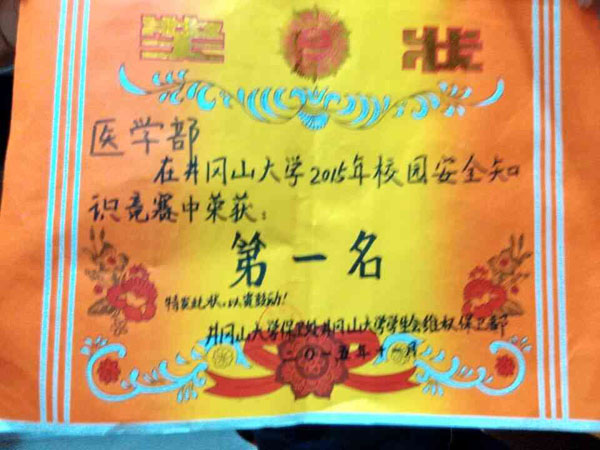 奖 状
医学部
在井冈山大学2015年校园安全知
识竞赛中荣获：
第一名
特发此状，以资鼓励！
井冈山大学保卫处井冈山大学学生会维权保卫部
二〇一五年十一月